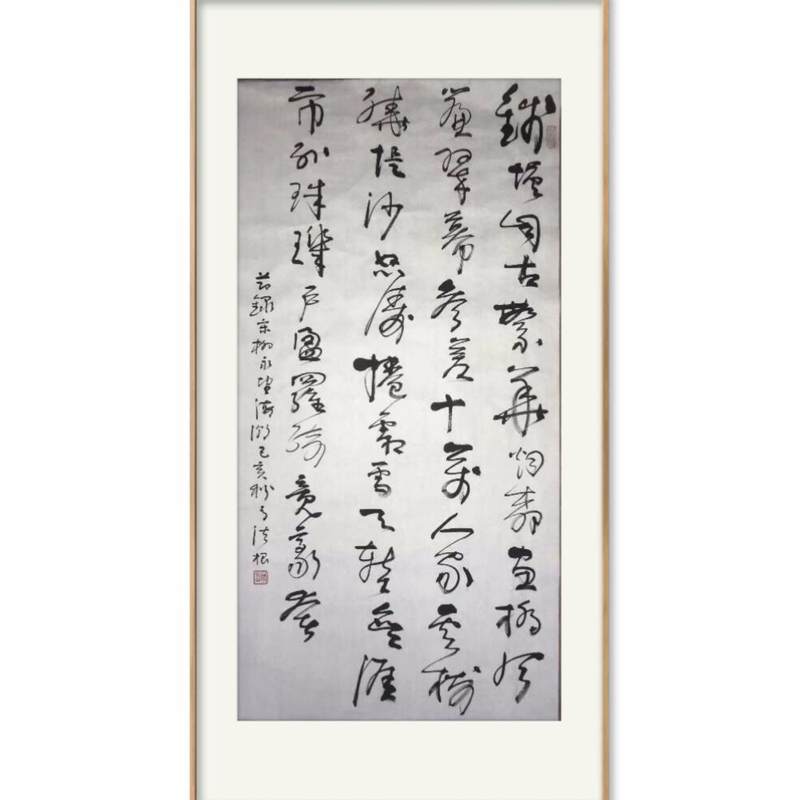 錢塘自古繁華烟柳画橋風
簾翠幕參差十萬人家雲樹
繞堤沙怒濤捲霜雪天塹無涯
市列珠璣戶盈羅綺競豪奢
節錄宋柳永望海潮己亥秋月洪根